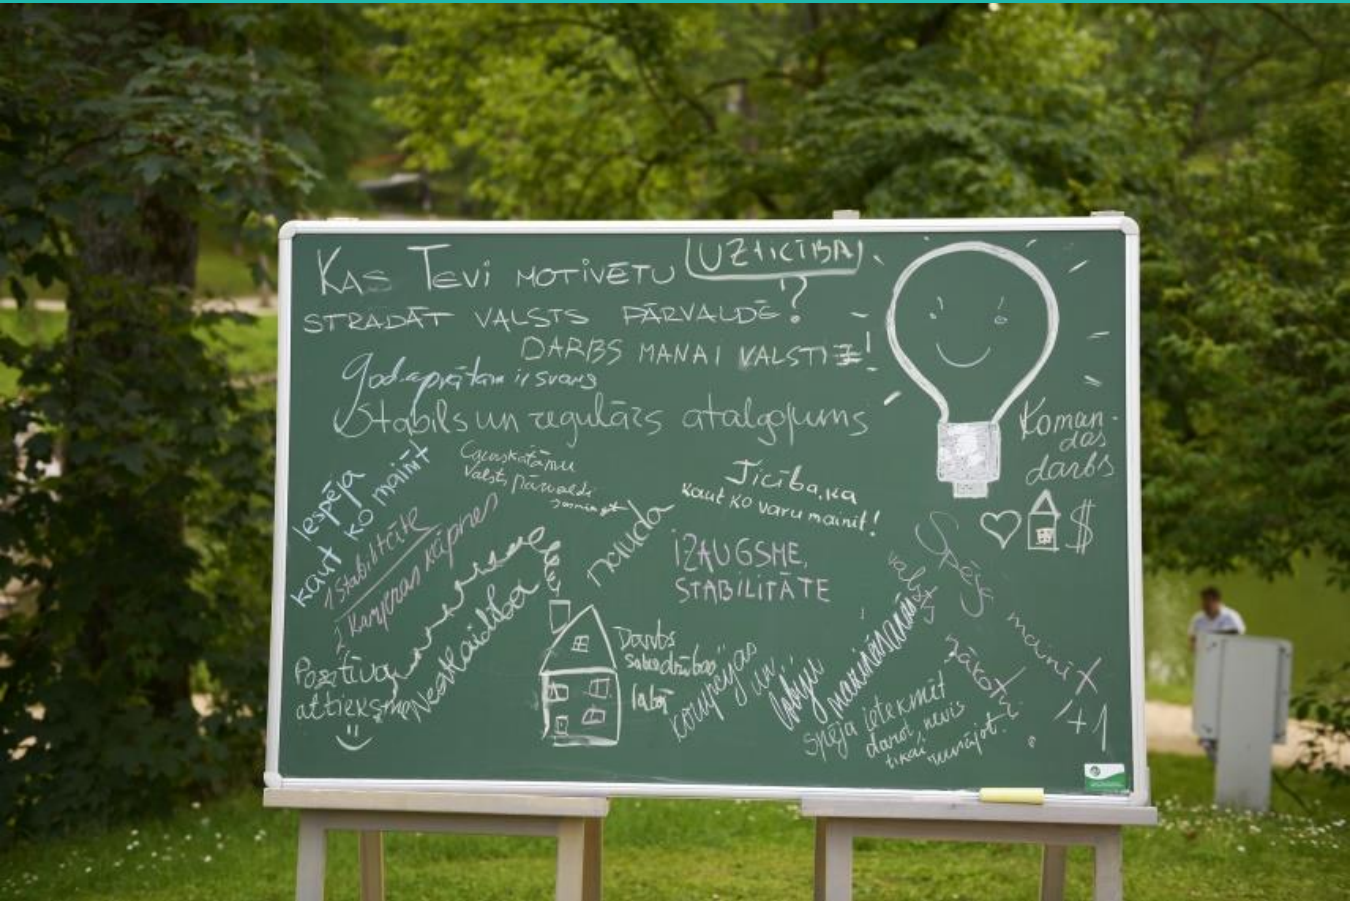 KAS TEVI MOTIVĒTU
UZTICĪBA
STRADĀT VALSTS PĀRVALDĒ?
DARBS MANAI VALSTIJ!
godaprātam ir svars
Stabils un regulārs atalgojums
Koman-
das
darbs
$
Iespēja
kaut ko mainīt
Caurskatāmu
valsts pārvaldi
Ticība, ka
kaut ko varu mainīt!
1 Stabilitāte
2 Karjeras kāpnes
nauda
IZAUGSME,
STABILITĀTE
Spēja
mainīt
valsts
nākotni
/+1
Pozitīva
attieksme
Neatkarība
Darbs
sabiedrības
labā
Spēja ietekmēt
darot, nevis
tikai runājot!